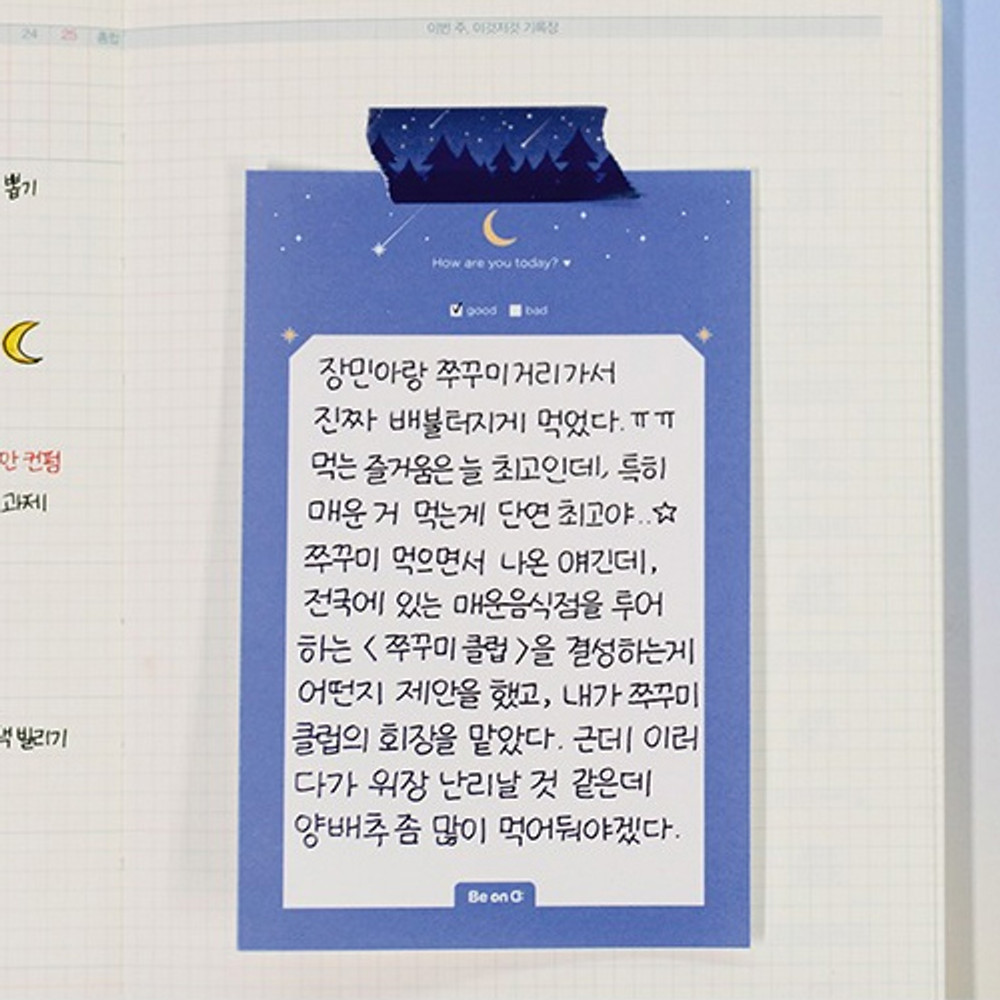 24 25 종합
이번 주, 이것저것 기록장
뽑기
안 컨펌
과제
책 빌리기
How are you today? ♥
good bad
장민아랑 쭈꾸미거리가서
진짜 배불터지게 먹었다.ㅠㅠ
먹는 즐거움은 늘 최고인데, 특히
매운 거 먹는게 단연 최고야..☆
쭈꾸미 먹으면서 나온 얘긴데,
전국에 있는 매운음식점을 투어
하는 <쭈꾸미 클럽>을 결성하는게
어떤지 제안을 했고, 내가 쭈꾸미
클럽의 회장을 맡았다. 근데 이러
다가 위장 난리날 것 같은데
양배추 좀 많이 먹어둬야겠다.
Be on D